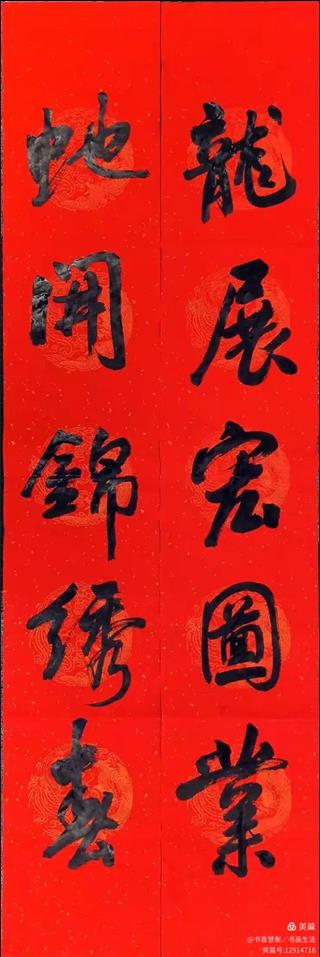 龍展宏圖業
虵開錦绣春
美篇
@书香慧衡／书画生活
美篇号:12914718